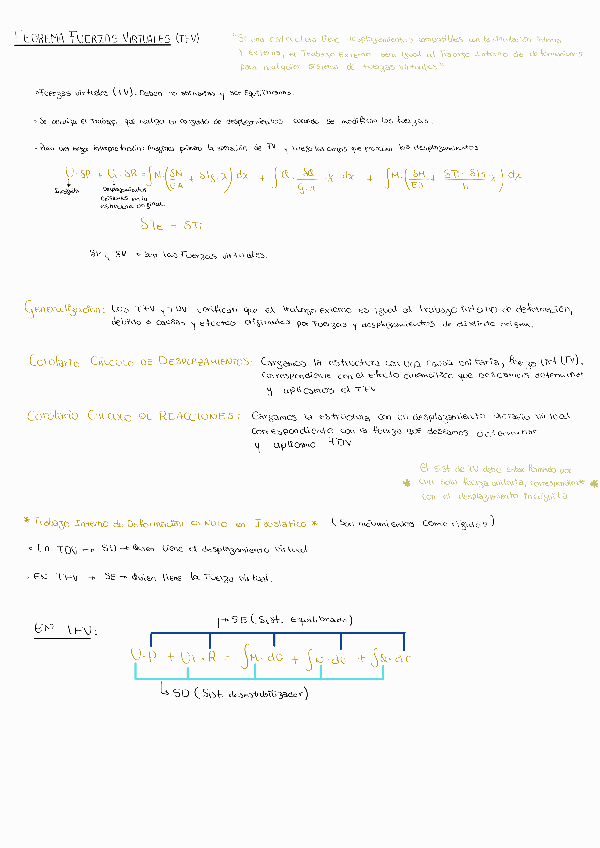 TEOREMA FUERZAS VIRTUALES (TFV)
"Si una estructura tiene desplazamientos compatibles con la vinculación interna
y externa, el Trabajo Externo será igual al Trabajo Interno de deformaciones
para cualquier sistema de fuerzas virtuales"
Fuerzas virtuales (FV). Deben ser arbitrarias y ser Equilibradas.
· Se averigua el trabajo que realiza un conjunto de desplazamientos cuando se modifican las fuerzas.
· Para una mejor interpretación: Imaginar primero la actuación de FV y luego las cargas que provocan los desplazamientos
Incógnita
Desplazamientos
existentes en la
estructura original.
δTE = δTi
son las Fuerzas virtuales.
Generalización: Los TFV y TDV verifican que el trabajo externo es igual al trabajo interno de deformación,
debido a causas y efectos originados por fuerzas y desplazamientos de distinto origen.
Corolario CÁLCULO DE DESPLAZAMIENTOS: Cargamos la estructura con una causa unitaria, fuerza virt (FV),
correspondiente con el efecto cinemático que deseamos determinar
y aplicamos el TFV
Corolario CÁLCULO DE REACCIONES: Cargamos la estructura con un desplazamiento unitario virtual
correspondiente con la fuerza que deseamos determinar
y aplicamos TDV
El sist de FV debe estar formado por
una sola fuerza unitaria, correspondiente
con el desplazamiento incógnita
* Trabajo Interno de Deformación es NULO en Isostático * (Son movimientos como rígidos)
· En TDV → SD → Quien tiene el desplazamiento virtual
· EN TFV → SE → Quien tiene la Fuerza virtual.
EN TFV:
→ SE (Sist. Equilibrado)
U·P + Ui·R = ∫M·dθ + ∫N·de + ∫Q·dr
↳ SD (Sist. desestabilizador)